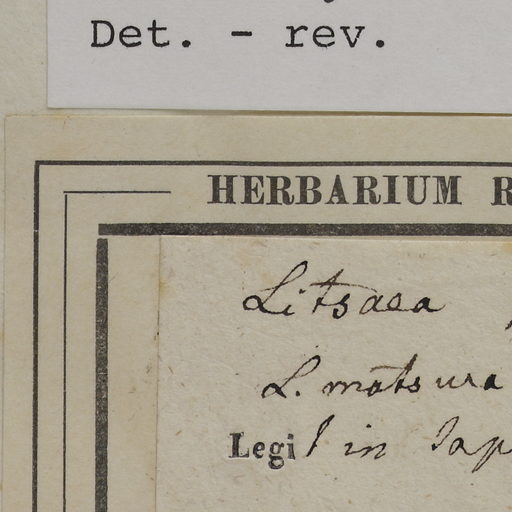 Det. - rev.
HERBARIUM R
Litsaea
L. matsura
Legi l in Jap